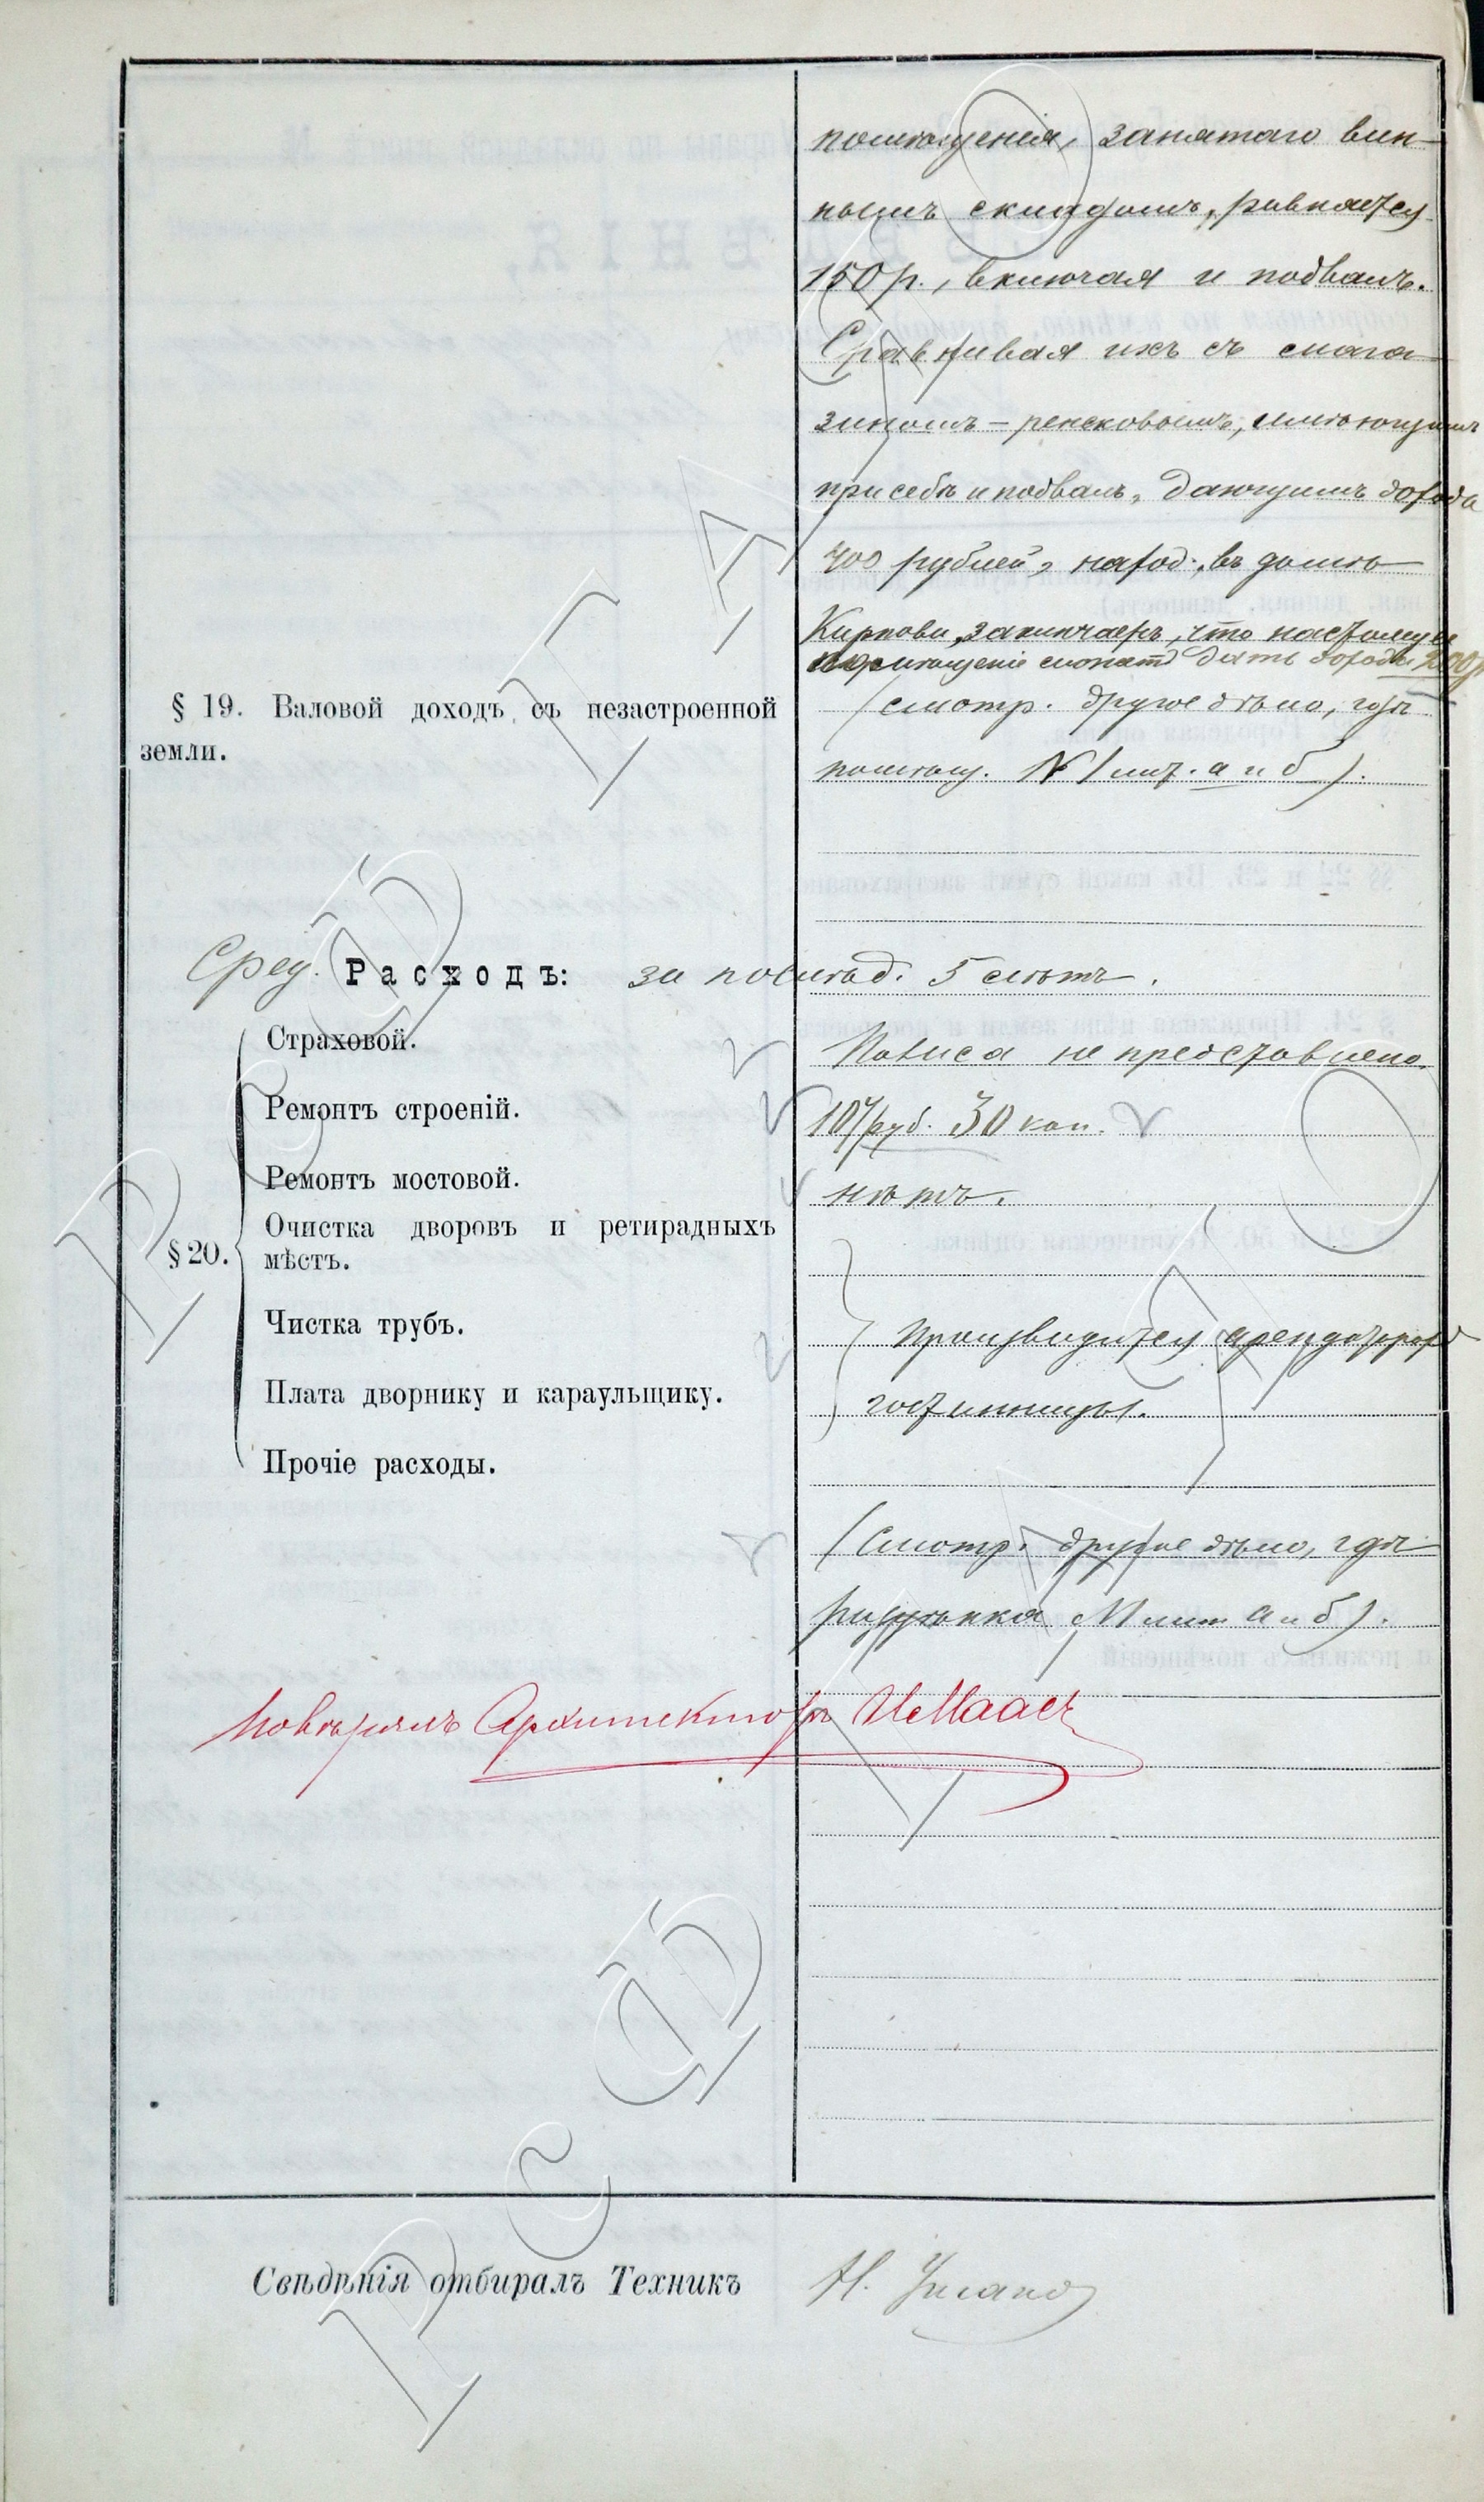 помѣщенія, занятаго вин-
нымъ складомъ, равняется
150 р., включая и подвалъ.
Сравнивая ихъ съ мага-
зиномъ – ренсковымъ, имѣющимъ
при себѣ и подвалъ, дающимъ дохода
400 рублей, наход. въ домѣ
заключаемъ, что настоящее
помѣщеніе можетъ дать дохода
§ 19. Валовой доходъ съ незастроенной
земли.
(смотр. другое дѣло, гдѣ
помѣщ. № 1 лит. а и б).
Сред. Расходъ: за послѣд. 5 лѣтъ.
§ 20.
Страховой.
Полиса не представлено.
Ремонтъ строеній.
107 руб. 30 коп.
Ремонтъ мостовой.
нѣтъ.
Очистка дворовъ и ретирадныхъ
мѣстъ.
Чистка трубъ.
Производится арендаторомъ
Плата дворнику и караульщику.
гостинницы.
Прочіе расходы.
(Смотр. другое дѣло, гдѣ
лит а и б).
Повѣрялъ Архитекторъ И Маасъ
Свѣдѣнія отбиралъ Техникъ
РГИА ДВ